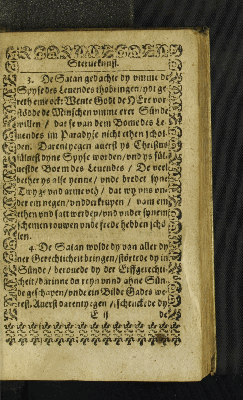 Stervekunst.
3. De Satan gedachte dy vmme de
Spyse des Levendes tho bringen / ydt ge
reth eme ock: Wente Godt de HEre vor
stödde de Minschen vmme erer Sünde
willen / dat se van dem Bome des Le
uendes im Paradyse nicht ethen schol
den. Darentyegen auerst ys Christus
sülnest dyne Spyse worden / vnd ys sül
uest de Bom des Leuendes / De veel
beter ys alse yenne / vnde bredet syne
Twyge vnd arme vth / dat wy vns on
der em negen / vnd vnderkrupen / van em
ethen vnd satt werden / vnd vnder synem
schemen rouwen vnde frede hebben schö
len.
4. De Satan wolde dy van aller dy
ner Gerechticheit bringen / störtede dy in
Sünde / berouede dy der Erffgerechti
cheit / darinne du reyn vnnd ahne Sün
de geschapen / vnde ein Bilde Gades we
rest. Auerst darentyegen / schenckede dy
E ij
de